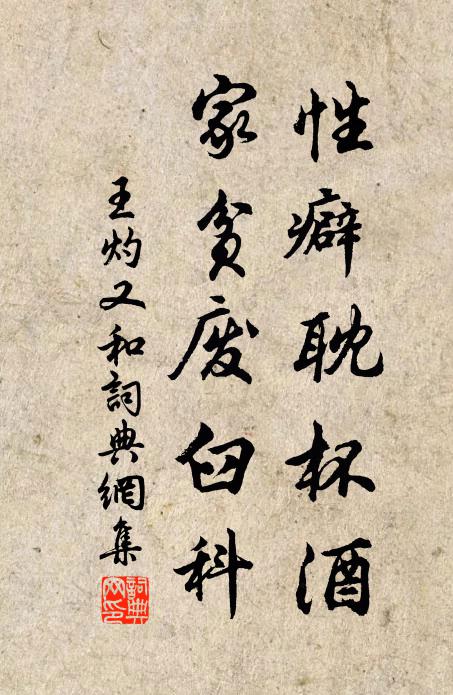 性癖耽杯酒
家貧廢臼科
王灼又和詞典網集
詞典網印